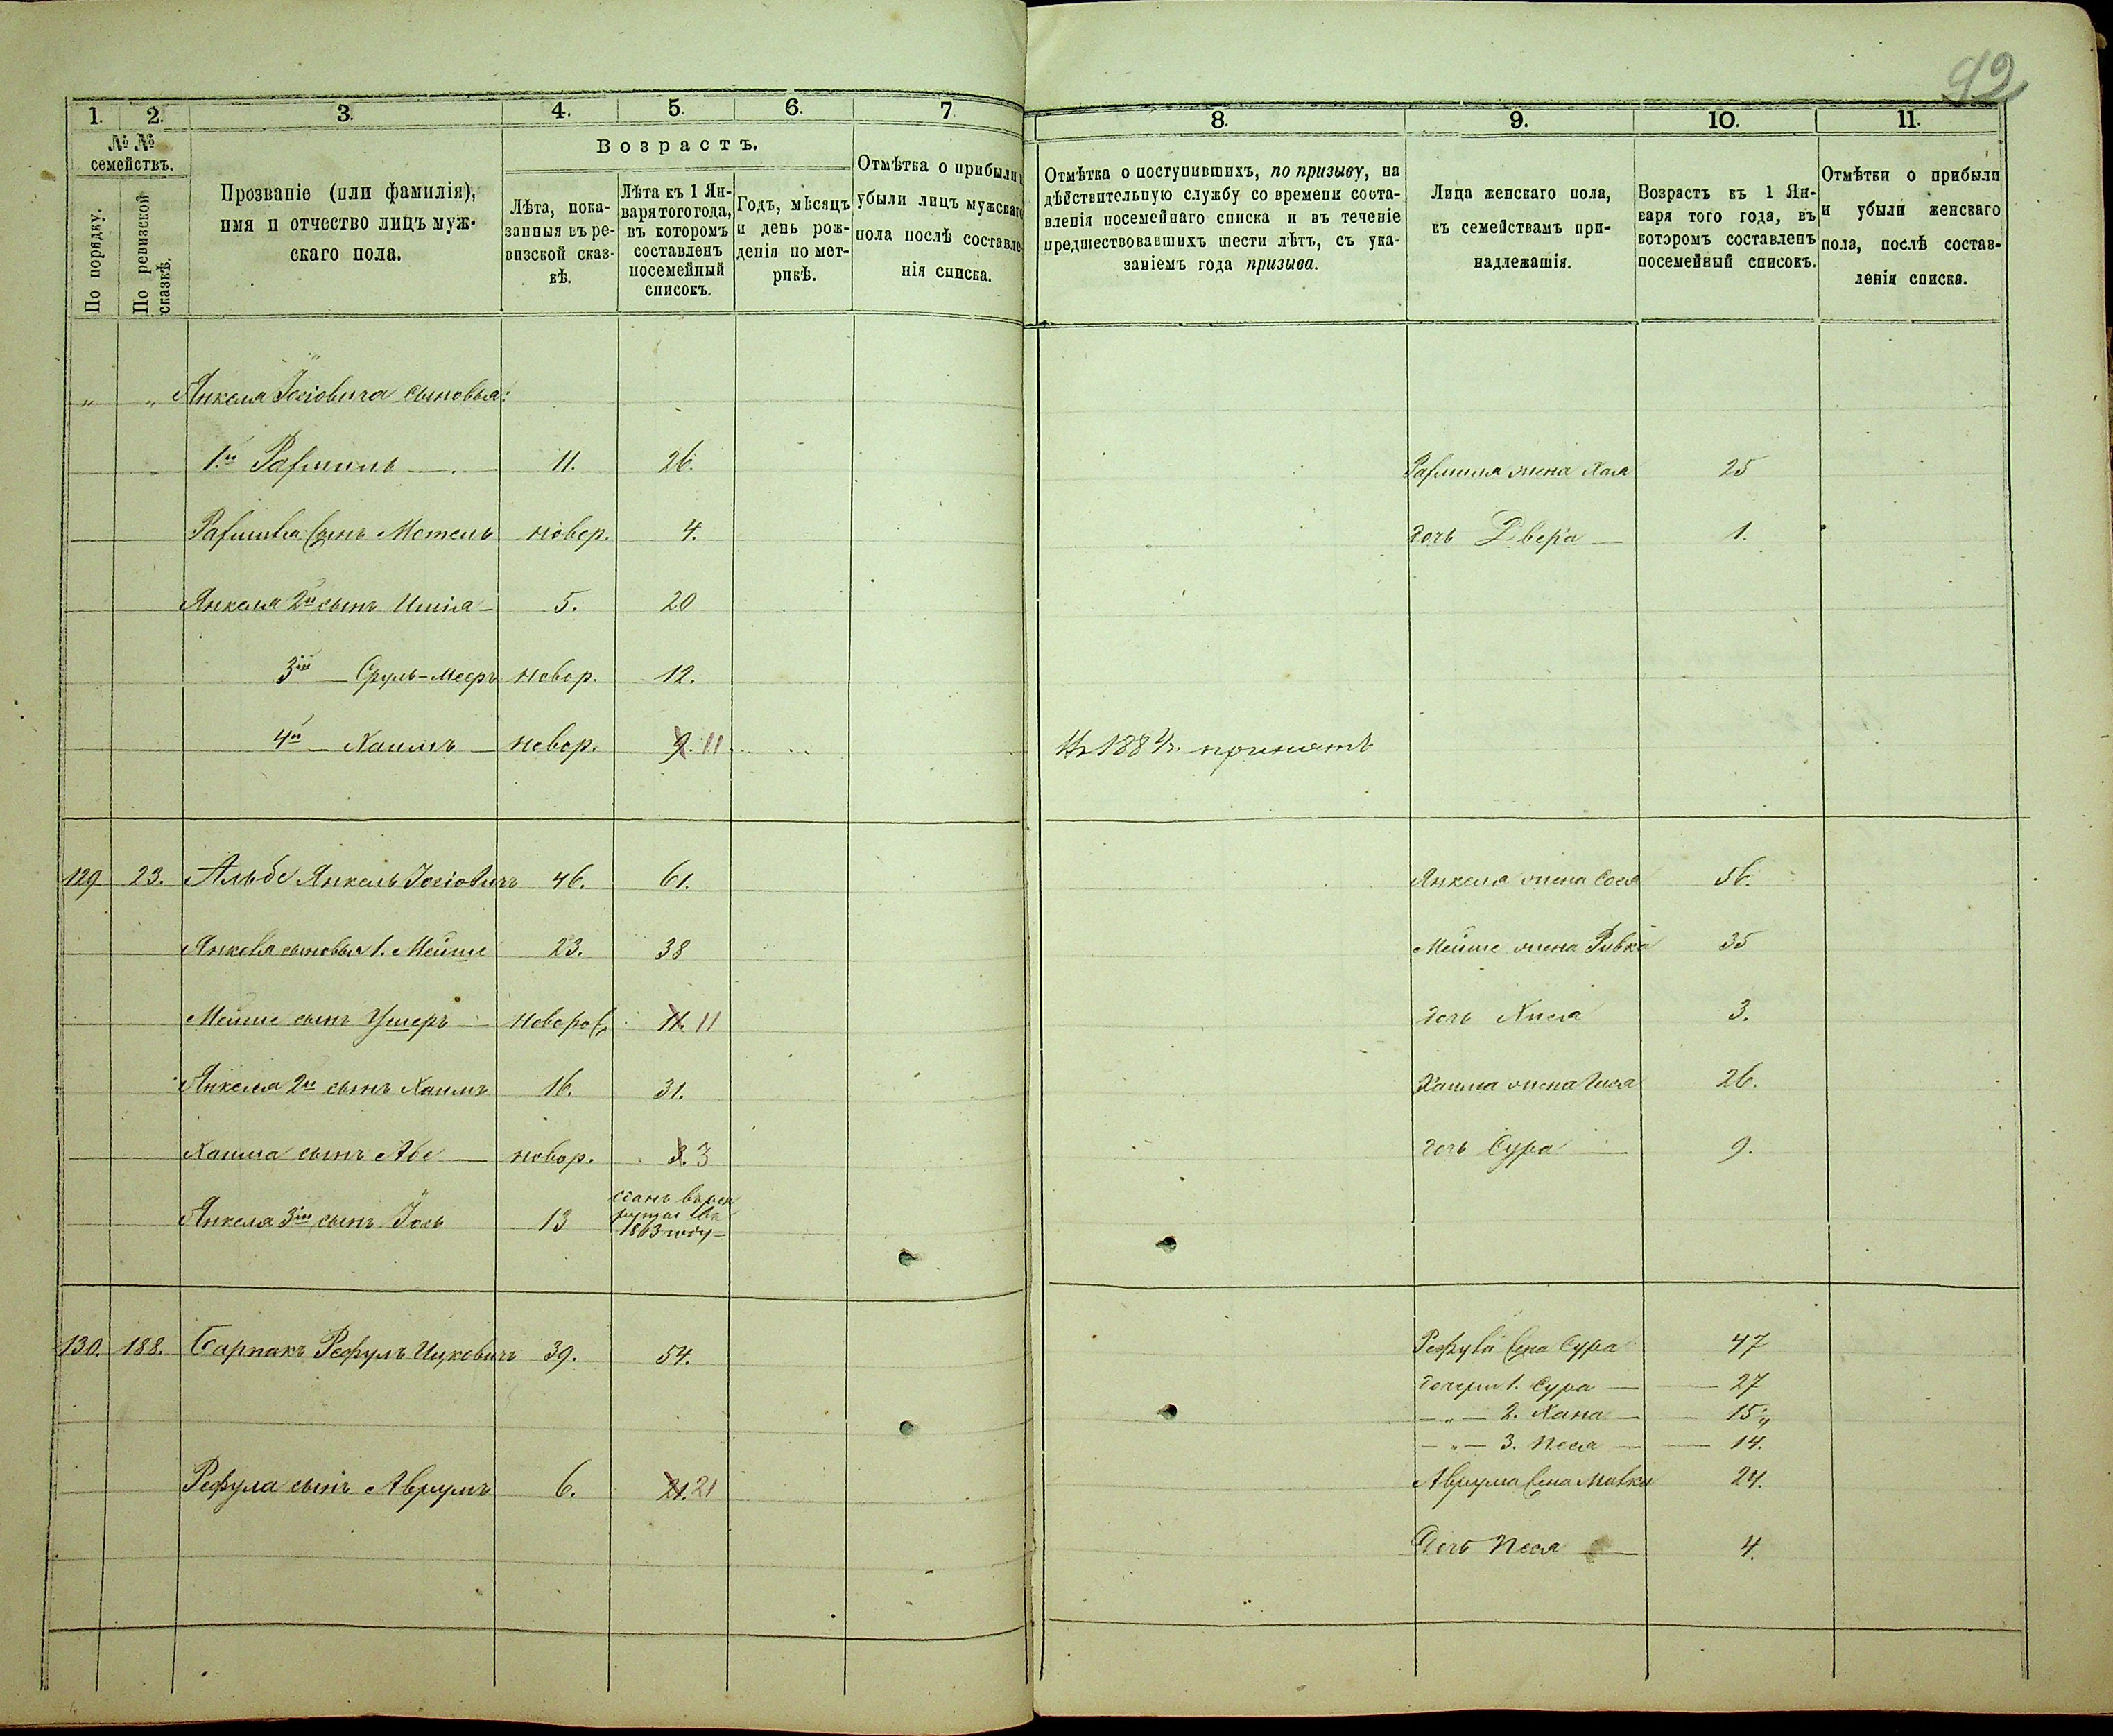 92
1. 2. 3. 4. 5. 6. 7.
№ № семействъ.
По порядку.
По ревизской сказкѣ.
Прозваніе (или фамилія), имя и отчество лицъ мужскаго пола.
Возрастъ.
Лѣта, показанныя въ ревизской сказкѣ.
Лѣта къ 1 Января того года, въ которомъ составленъ посемейный списокъ.
Годъ, мѣсяцъ и день рожденія по метрикѣ.
Отмѣтка о прибыли и убыли лицъ мужскаго пола послѣ составленія списка.
8. 9. 10. 11.
Отмѣтка о поступившихъ, по призыву, на дѣйствительную службу со времени составленія посемейнаго списка и въ теченіе предшествовавшихъ шести лѣтъ, съ указаніемъ года призыва.
Лица женскаго пола, къ семействамъ принадлежащія.
Возрастъ къ 1 Января того года, въ котэромъ составленъ посемейный списокъ.
Отмѣтки о прибыли и убыли женскаго пола, послѣ составленія списка.
„ „ Янкеля Іосіовича сыновья:
1й 11. 26. жена Хая 25
сынъ Мотель новор. 4. дочь Двера 1.
Янкеля 2й сынъ 5. 20
3ій Сруль-Мееръ новор. 12.
4й Хаимъ новор. 9. 11 принятъ
129 23. Альбе Янкель Іосіовичъ 46. 61. Янкеля жена Сося 56.
Янкеля сыновья 1. Мейше 23. 38 Мейше жена Ривка 35
Мейше сынъ Ушеръ 11. 11 дочь 3.
Янкеля 2й сынъ Хаимъ 16. 31. Хаима жена 26.
Хаима сынъ Абе новор. 3. 3 дочь Сура 9.
Янкеля 3ій сынъ Іось 13 1863 году
130. 188. Барнакъ Рефулъ Ицковичъ 39. 54. Сура 47
дочери 1. Сура 27
„ 2. Хана 15
„ 3. Песя 14.
Рефула сынъ Аврумъ 6. 21. 21 Аврума 24.
Дочь Песя 4.